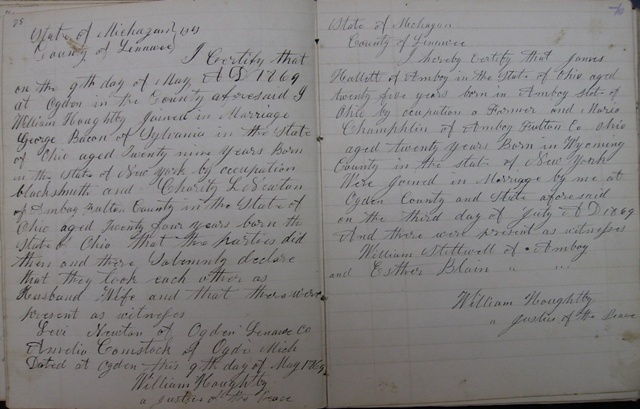 75
State of Michagan } ss
County of Lenawee
I Certify that
on the 9th day of May A D 1869
at Ogden in the County aforesaid I
William Houghtby Joined in Marriage
George Bacon of Sylvania in the State
of Ohio aged Twenty nine years Born
in the State of New York by occupation
blacksmith and Charity L Newton
of Amboy Fulton County in the State of
Ohio aged Twenty four years born the
State Ohio That the parties did
then and there Solemnly declare
that they took each other as
Husband Wife and that there were
present as witness
Levi Newton of Ogden Lenawe Co
Amelia Comstock of Ogde Mich
Dated at Ogden this 9th day of May 1869
William Houghtby
a Justice of the Peace
76
State of Michagan
County of Lenawee
I hereby Certify that James
Hallett of Amboy in the State of Ohio aged
twenty five years born in Amboy state of
Ohio by ocupation a Farmer and Maria
Champhlin of Amboy Fulton Co Ohio
aged twenty years Born in Wyoming
County in the state of New York
Were Joined in Marriage by me at
Ogden County and State aforesaid
on the third day of July A D 1869
And there were present as witnesses
William Stittwell of Amboy
and Esther Blain " "
William Houghtby
" Justice of the Peace